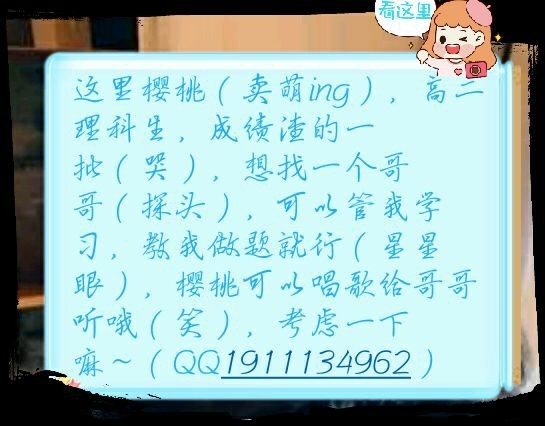 看这里
这里樱桃（卖萌ing），高二
理科生，成绩渣的一
批（哭），想找一个哥
哥（探头），可以管我学
习，教我做题就行（星星
眼），樱桃可以唱歌给哥哥
听哦（笑），考虑一下
嘛～（QQ1911134962）